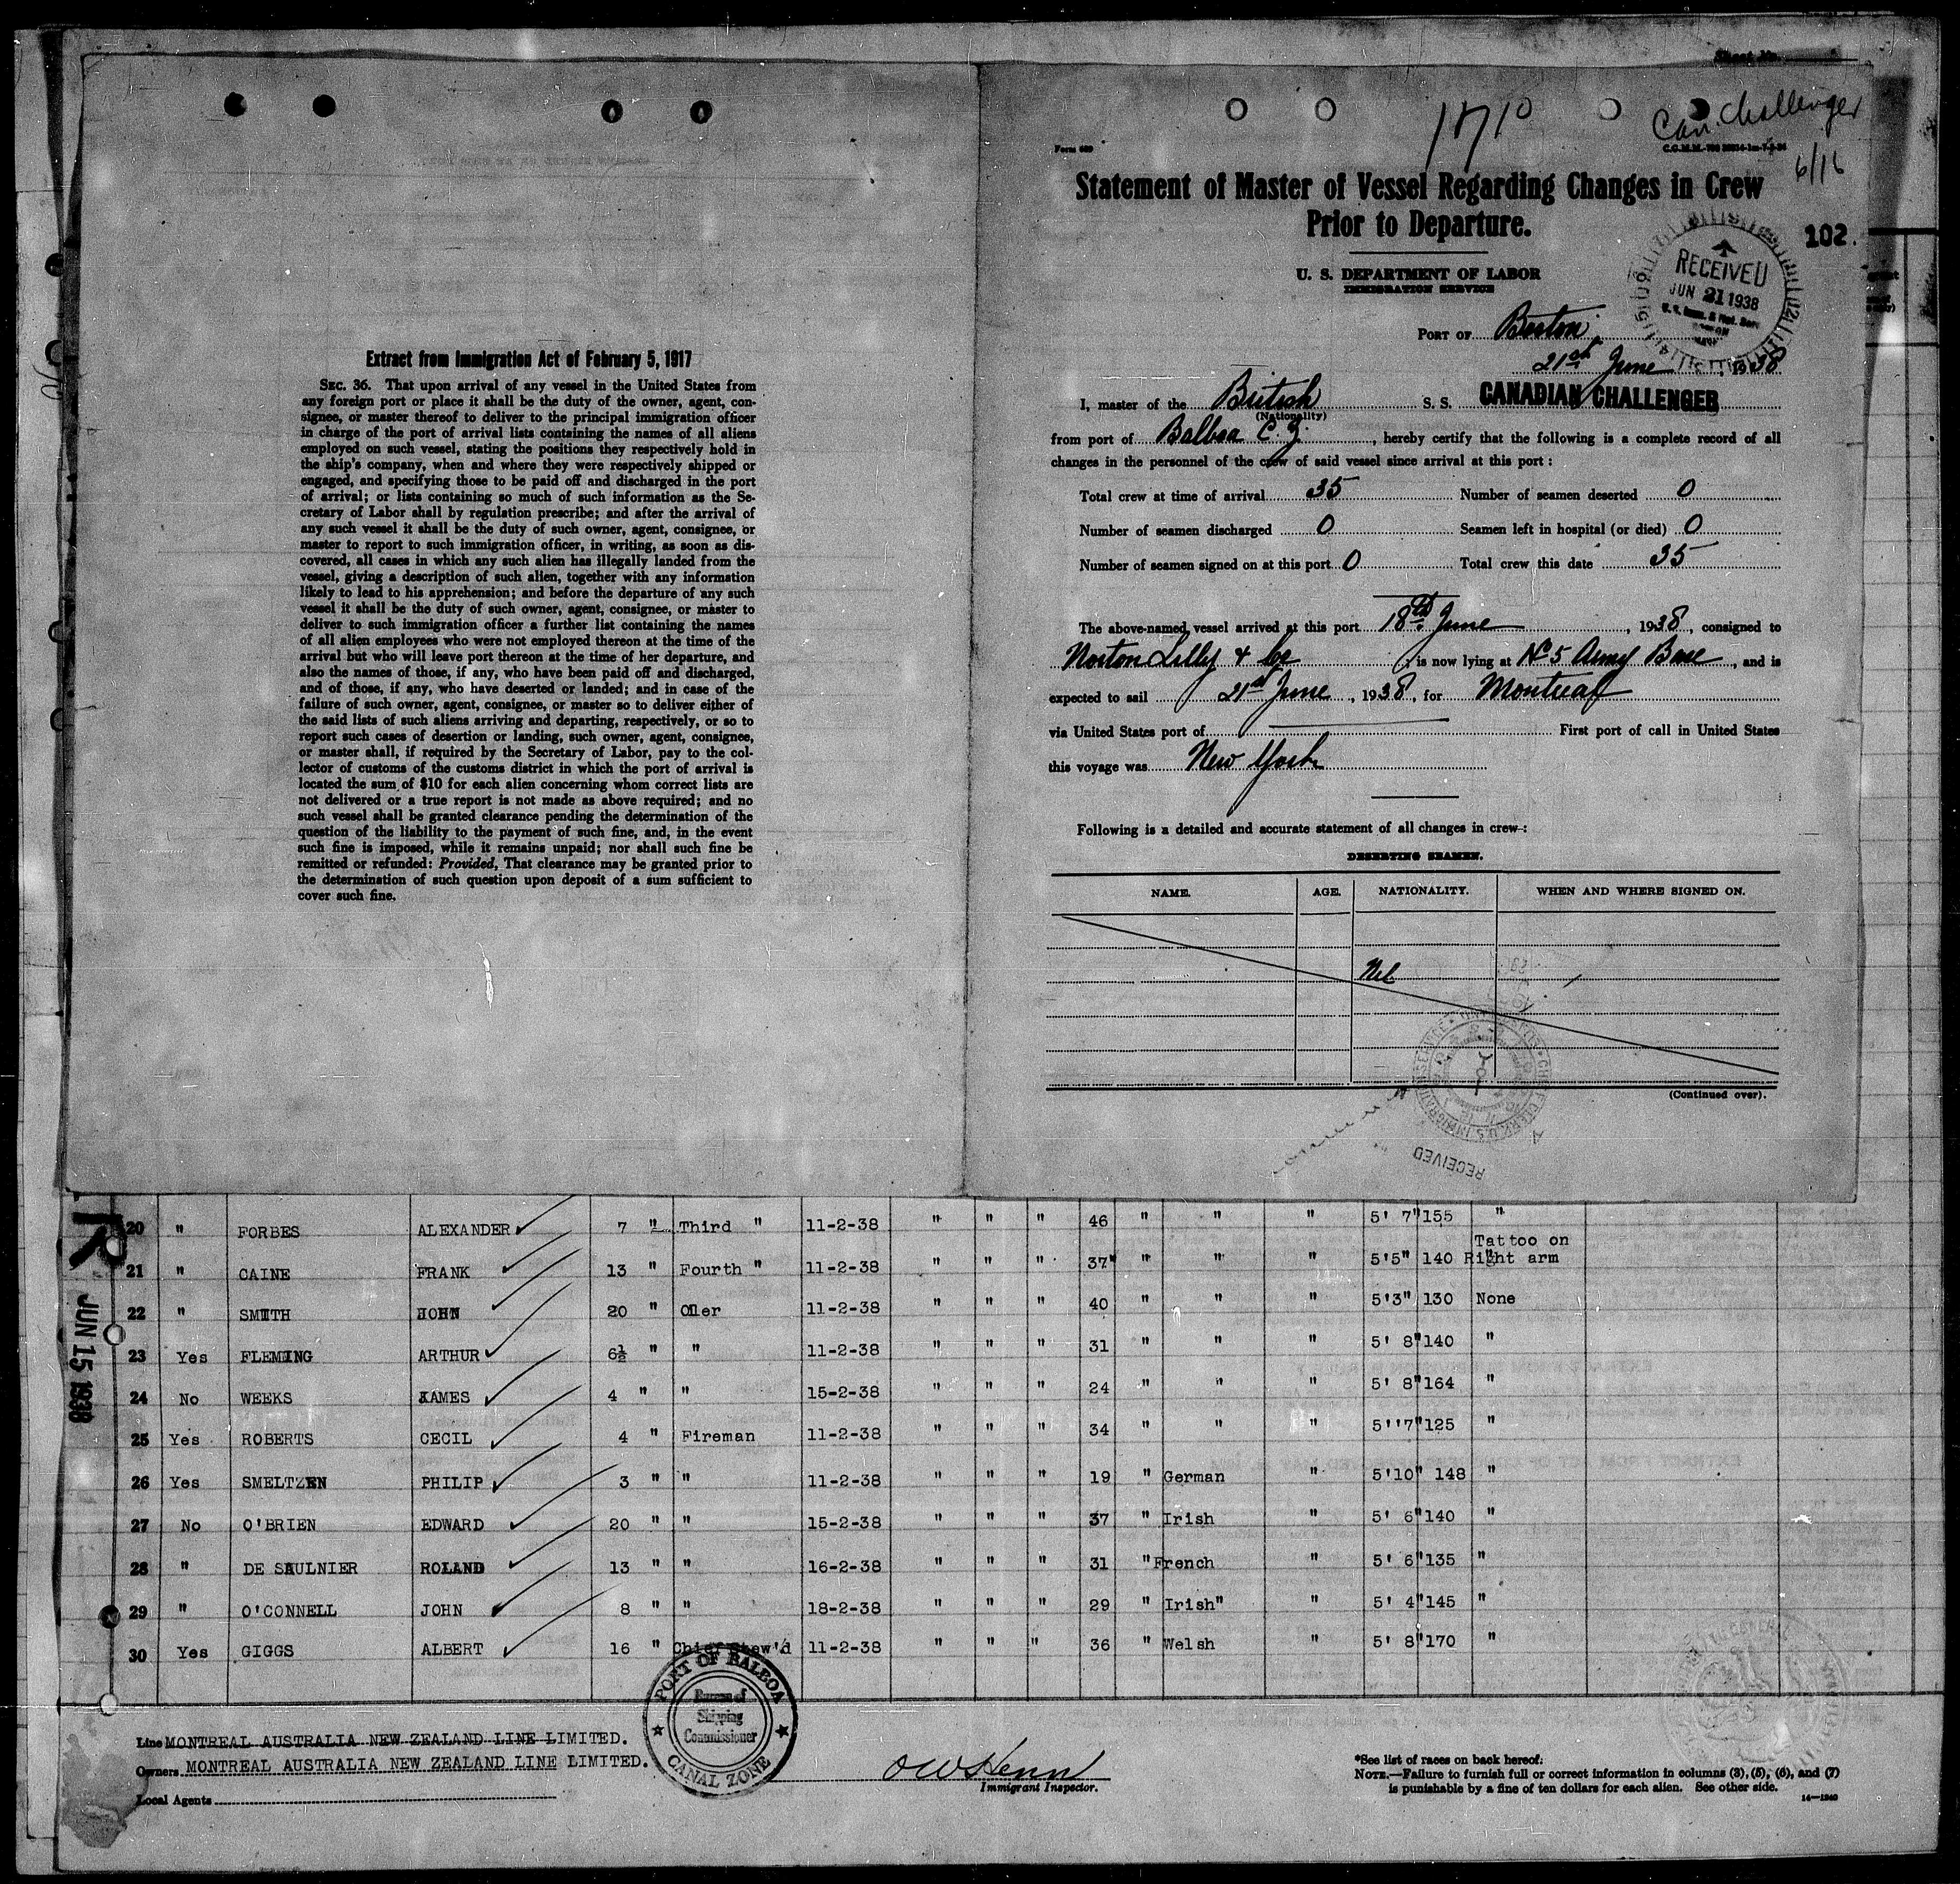 Extract from Immigration Act of February 5, 1917
SEC. 36. That upon arrival of any vessel in the United States from
any foreign port or place it shall be the duty of the owner, agent, con-
signee, or master thereof to deliver to the principal immigration officer
in charge of the port of arrival lists containing the names of all aliens
employed on such vessel, stating the positions they respectively hold in
the ship's company, when and where they were respectively shipped or
engaged, and specifying those to be paid off and discharged in the port
of arrival; or lists containing so much of such information as the Se-
cretary of Labor shall by regulation prescribe; and after the arrival of
any such vessel it shall be the duty of such owner, agent, consignee, or
master to report to such immigration officer, in writing, as soon as dis-
covered, all cases in which any such alien has illegally landed from the
vessel, giving a description of such alien, together with any information
likely to lead to his apprehension; and before the departure of any such
vessel it shall be the duty of such owner, agent, consignee, or master to
deliver to such immigration officer a further list containing the names
of all alien employees who were not employed thereon at the time of the
arrival but who will leave port thereon at the time of her departure, and
also the names of those, if any, who have been paid off and discharged,
and of those, if any, who have deserted or landed; and in case of the
failure of such owner, agent, consignee, or master so to deliver either of
the said lists of such aliens arriving and departing, respectively, or so to
report such cases of desertion or landing, such owner, agent, consignee,
or master shall, if required by the Secretary of Labor, pay to the col-
lector of customs of the customs district in which the port of arrival is
located the sum of $10 for each alien concerning whom correct lists are
not delivered or a true report is not made as above required; and no
such vessel shall be granted clearance pending the determination of the
question of the liability to the payment of such fine, and, in the event
such fine is imposed, while it remains unpaid; nor shall such fine be
remitted or refunded: Provided, That clearance may be granted prior to
the determination of such question upon deposit of a sum sufficient to
cover such fine.
Can. Challenger
6/16
Statement of Master of Vessel Regarding Changes in Crew
Prior to Departure.
102.
U. S. DEPARTMENT OF LABOR
IMMIGRATION SERVICE
RECEIVED
JUN 21 1938
PORT OF Boston
21st June, 1938
I, master of the British S. S. CANADIAN CHALLENGER
(Nationality)
from port of Balboa C. Z., hereby certify that the following is a complete record of all
changes in the personnel of the crew of said vessel since arrival at this port:
Total crew at time of arrival 35 Number of seamen deserted 0
Number of seamen discharged 0 Seamen left in hospital (or died) 0
Number of seamen signed on at this port 0 Total crew this date 35
The above-named vessel arrived at this port 18th June, 1938, consigned to
Norton Lilly & Co, is now lying at No 5 Army Base, and is
expected to sail 21st June, 1938, for Montreal
via United States port of First port of call in United States
this voyage was New York
Following is a detailed and accurate statement of all changes in crew:
DESERTING SEAMEN.
NAME. AGE. NATIONALITY. WHEN AND WHERE SIGNED ON.
Nil
(Continued over).
RECEIVED
JUN 15 1938
20 " FORBES ALEXANDER 7 " Third " 11-2-38 " " " 46 " " " 5' 7" 155 "
21 " CAINE FRANK 13 " Fourth " 11-2-38 " " " 37" " " " 5'5" 140 Tattoo on Right arm
22 " SMITH JOHN 20 " Oiler 11-2-38 " " " 40 " " " 5'3" 130 None
23 Yes FLEMING ARTHUR 6½ " " 11-2-38 " " " 31 " " " 5' 8" 140 "
24 No WEEKS JAMES 4 " " 15-2-38 " " " 24 " " " 5' 8" 164 "
25 Yes ROBERTS CECIL 4 " Fireman 11-2-38 " " " 34 " " " 5''7" 125 "
26 Yes SMELTZEN PHILIP 3 " " 11-2-38 " " " 19 " German " 5'10" 148 "
27 No O'BRIEN EDWARD 20 " " 15-2-38 " " " 37 " Irish " 5' 6" 140 "
28 " DE SAULNIER ROLAND 13 " " 16-2-38 " " " 31 " French " 5' 6" 135 "
29 " O'CONNELL JOHN 8 " " 18-2-38 " " " 29 " Irish" " 5' 4" 145 "
30 Yes GIGGS ALBERT 16 " Chief Stew'd 11-2-38 " " " 36 " Welsh " 5' 8" 170 "
PORT OF BALBOA
Bureau of
Shipping
Commissioner
CANAL ZONE
Line MONTREAL AUSTRALIA NEW ZEALAND LINE LIMITED.
Owners MONTREAL AUSTRALIA NEW ZEALAND LINE LIMITED.
Local Agents
Immigrant Inspector.
*See list of races on back hereof.
NOTE.—Failure to furnish full or correct information in columns (3), (5), (6), and (7)
is punishable by a fine of ten dollars for each alien. See other side.
14—1240